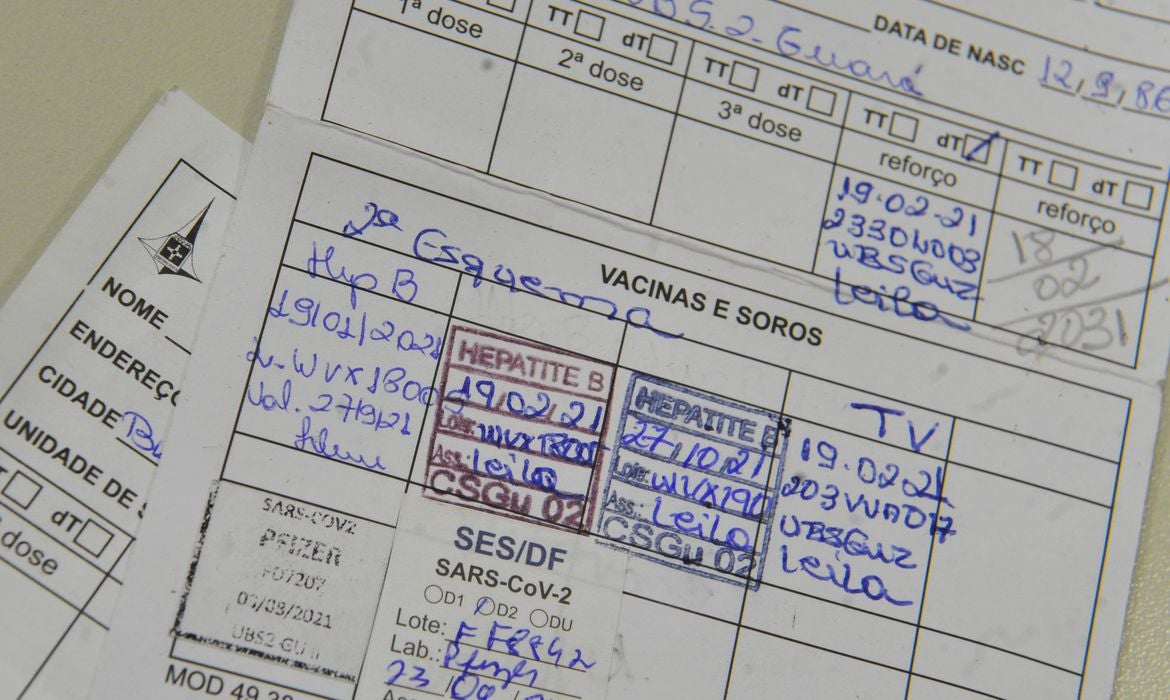 UBS.2-Guará
DATA DE NASC 12,9,86
1ª dose
TT dT
2ª dose
TT dT
3ª dose
TT dT
reforço
19.02-21
UBSGU2
Leila
TT dT
reforço
18
02
2031
VACINAS E SOROS
2º Esquema
Hep B
19/01/2021
Val. 27/9/21
HEPATITE B
19/02/21
Lote:
Ass.: Leila
CSGu 02
HEPATITE B
27/10/21
Lote: WVX190
Ass.: Leila
CSGu 02
TV
19.02.21
UBSGU2
Leila
SARS-COV2
PFIZER
FD7207
03/08/2021
UBS2-GU II
SES/DF
SARS-CoV-2
D1 D2 DU
Lote:
Lab.: Pfizer
NOME
ENDEREÇO
CIDADE
UNIDADE DE S
dT
dose